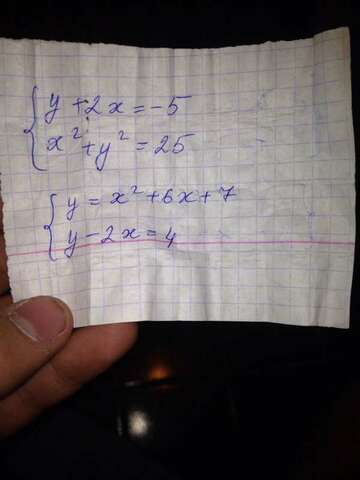 y + 2x = -5
x² + y² = 25
y = x² + 6x + 7
y - 2x = 4